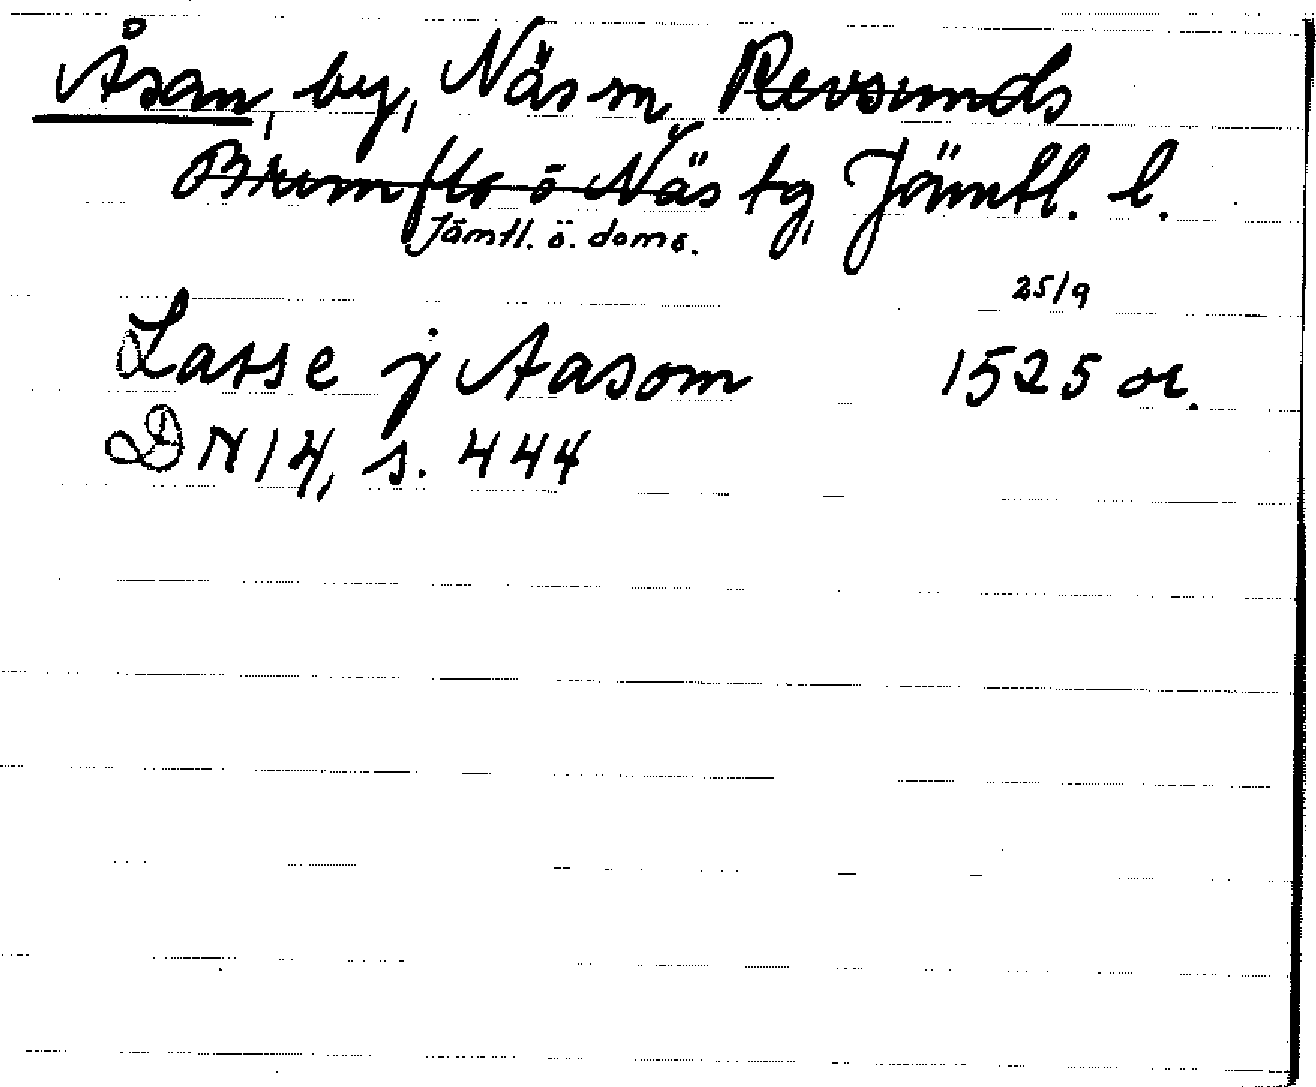 Åsan, by, Näs sn, Revsunds
Brunflo o Näs tg, Jämtl. l.
Jämtl. ö. doms.
25/9
Lasse j Aasom 1525 or.
DN 14, s. 444